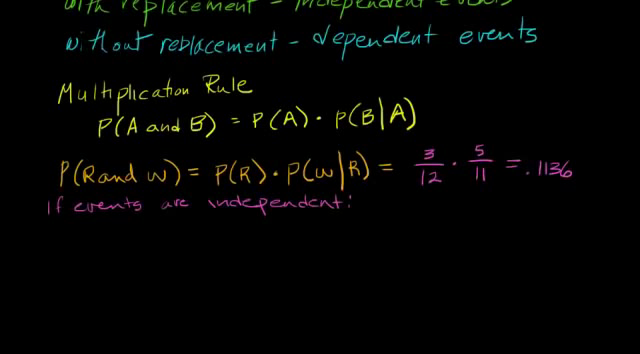 with replacement - independent events
without reblacement - dependent events
Multiplication Rule
P(A and B) = P(A) · P(B|A)
P(R and W) = P(R) · P(W|R) = 3/12 · 5/11 = .1136
If events are independent: